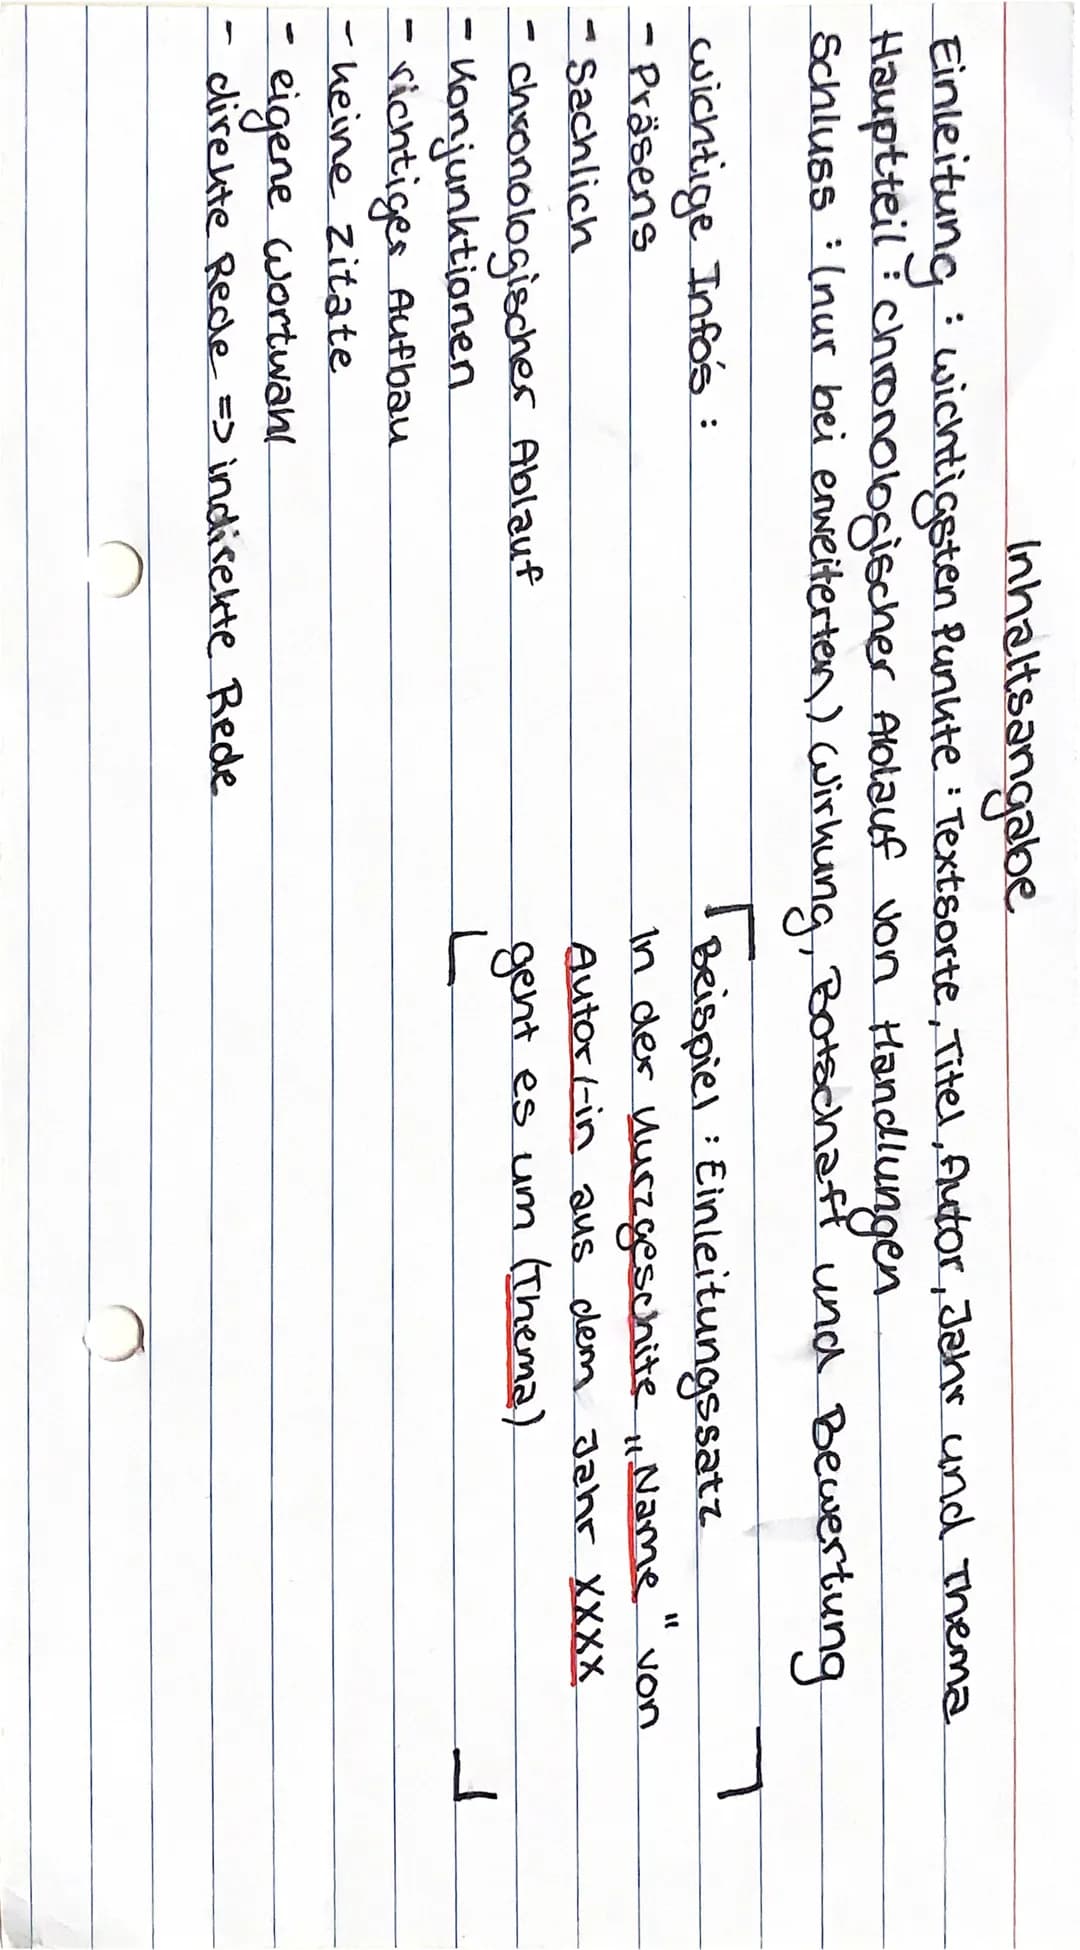 Inhaltsangabe
Einleitung : wichtigsten Punkte : Textsorte, Titel, Autor, Jahr und Thema
Hauptteil : chronologischer Ablauf von Handlungen
Schluss : (nur bei erweiterten) Wirkung, Botschaft und Bewertung
wichtige Info's :
- Präsens
- Sachlich
- chronologischer Ablauf
- Konjunktionen
- richtiger Aufbau
- keine Zitate
- eigene Wortwahl
- direkte Rede => indirekte Rede
Beispiel : Einleitungssatz
In der Kurzgeschite "Name" von
Autor/-in aus dem Jahr XXXX
geht es um (Thema)